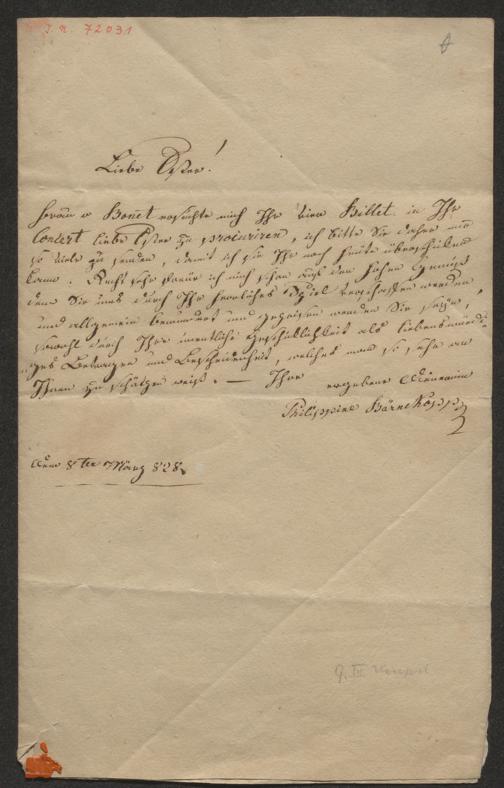 I. N. 72031
Liebe Ester!
Frau v Bonet ersuchte mich Ihr vier Billet in Ihr
Concert liebe Ester zu procuriren, ich bitte Sie daher mir
so viele zu senden, damit ich sie Ihr noch heute überschicken
kann. Recht sehr freue ich mich schon auf den hohen Genuß
den Sie uns durch Ihr herrliches Spiel verschaffen werden
und allgemein bewundert und gepriesen werden Sie seyn,
sowohl durch Ihre Geschicklichkeit als liebenswürdi-
ges Betragen und Bescheidenheit, welches man so sehr an
Ihnen zu schätzen weiß. — Ihre
ergebene
Philippine Bärnkopp
den 8ten März 828.